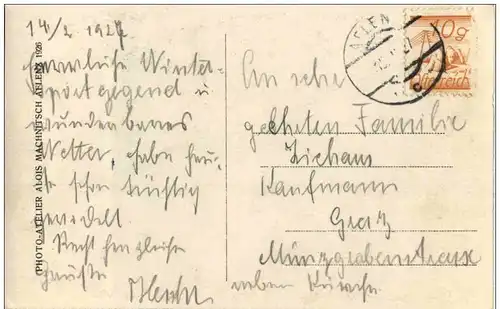 14/2 1927
Herrliche Winter-
sportgegend u
wunderbares
Wetter, habe heu-
te schon tüchtig
gerodelt.
Recht herzliche
Grüsse
(PHOTO-ATELIER ALOIS MACHNITSCH AFLENZ 1926
AFLEN
10g
Österreich
An sehr
geehrten Familie
Kaufmann
Graz
Münzgrabenstrasse
neben